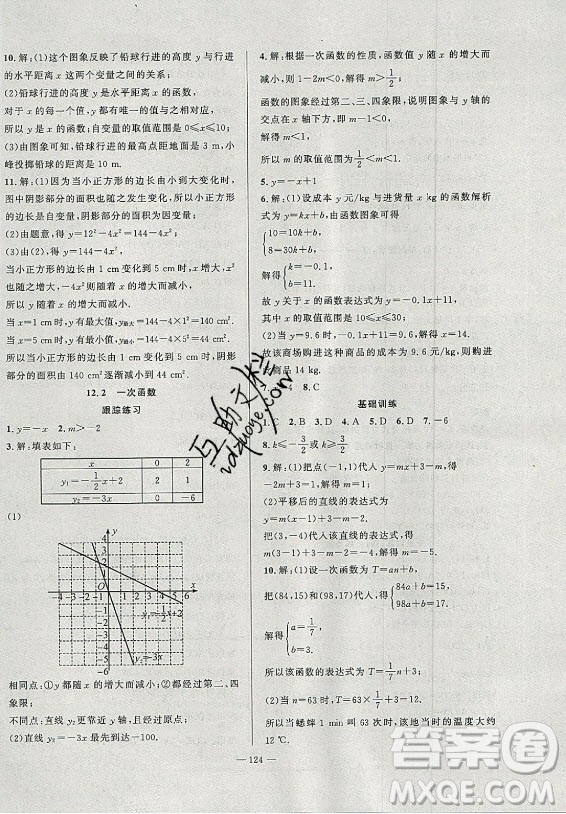 10.解:(1)这个图象反映了铅球行进的高度 y 与行进
的水平距离 x 这两个变量之间的关系;
(2)铅球行进的水平距离 x 取值在一定范围时,
对于 x 的每一个值,y 都有唯一的值与之相对应,
所以 y 是 x 的函数;自变量的取值范围是 0≤x≤10;
(3)由图象可知,铅球行进的最高点距地面是 3 m,小
峰投掷铅球的距离是 10 m.
11.解:(1)因为当小正方形的边长由小到大变化时,
图中阴影部分的面积也随之发生变化,所以小正方
形的边长是自变量,阴影部分的面积是因变量;
(2)由题意,得 y=12²-4x²=144-4x²
(3)由(2)知:y=144-4x²
当小正方形的边长由 1 cm 变化到 5 cm 时,x 增大,
x² 也随之增大,-4x² 则随着 x 的增大而减小,
所以 y 随着 x 的增大而减小.
当 x=1 cm 时,y 有最大值,y最大=144-4×1²=140.
当 x=5 cm 时,y 有最小值,y最小=144-4×5²=44.
所以当小正方形的边长由 1 cm 变化到 5 cm 时,阴影
部分的面积由 140 cm² 逐渐减小到
12.2 一次函数
跟踪练习
1.y=-x 2.m>-2
3.解:填表如下:
x 0 2
y₁=-1/2x+2 2 1
y₂=-3x 0 -6
(1)
y
4
3
2
1
-4 -3 -2 -1 O 1 2 3 4 5 6 x
-1
-2
-3
-4
-5
-6
y₁=-1/2x+2
y₂=-3x
相同点:①y 都随 x 的增大而减小;②都经过第二、四
象限;
不同点:直线与 y 轴的交点位置不同.
(2)直线 y₂=-3x 最先到达-100.
4.解:根据一次函数的性质,函数值 y 随 x 的增大而
减小,则 1-2m<0,解得 m>1/2;
函数的图象经过第二、三、四象限,说明图象与 y 轴的
交点在 x 轴下方,即 m-1<0,
解得 m<1;
所以 m 的取值范围为 1/2<m<1.
5.y=-x+3
6.解:(1)设成本 y 元/kg 与进货量 x kg 的函数解析
式为 y=kx+b,由函数图象可以得
{10=10k+b,
8=30k+b,
解得{k=-0.1,
b=11.
故 y 关于 x 的函数表达式为 y=-0.1x+11,
其中 x 的取值范围是 10≤x≤30;
(2)当 y=9.6 时,9.6=-0.1x+11,解得 x=14,
故该商场购进这种商品的成本为 9.6 元/kg,则购进
此商品 14 kg.
8.C
基础训练
1.B 2.C 3.B 4.D 5.D 6.2 7.-6
9.解:(1)把点 P(-2,1)代入 y=mx+3,得
-2m+3=1,解得 m=1.
(2)平移后的直线的表达式为
y=mx+3-m.
把(3,-4)代入该直线的表达式得
3m+3-m=-4.
10.解:(1)设一次函数的表达式为 T=an+b,
把(84,15)和(98,17)代入,得{84a+b=15,
98a+b=17.
解得{a=1/7,
b=3.
所以该函数的表达式为 T=1/7n+3;
(2)当 n=63 时,T=1/7×63+3=12,
所以当蟋蟀 1 min 叫 63 次时,该地当时的温度大约
12 ℃.
— 124 —
互助文栏
idzuoye.com
答案圈
MXQE.COM